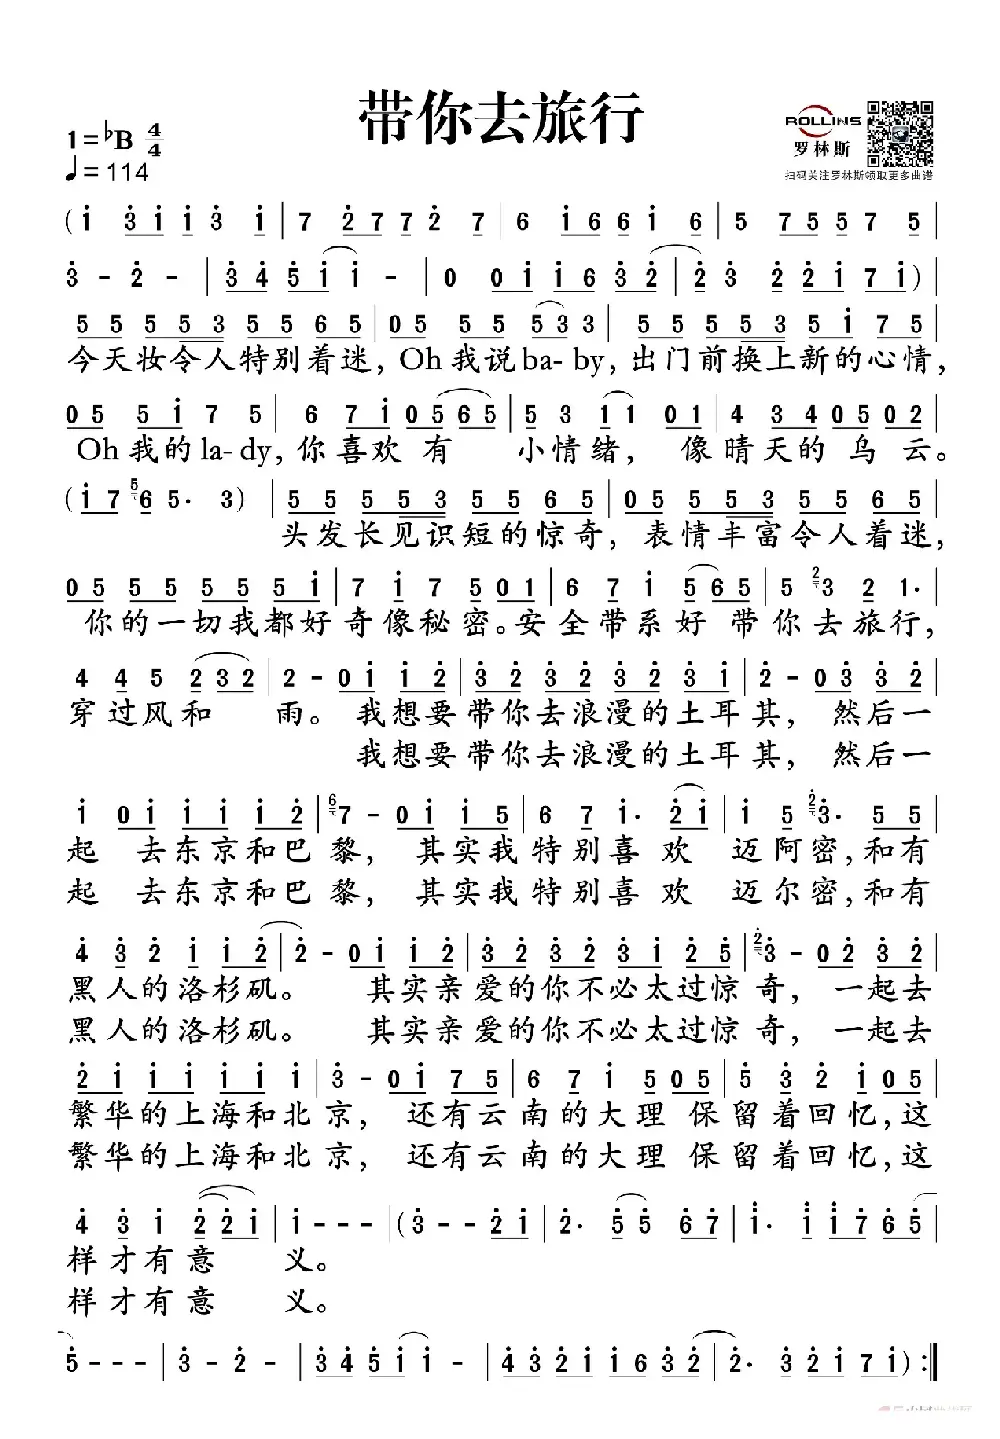 带你去旅行
1=♭B 4/4
♩=114
ROLLINS
罗林斯
扫码关注罗林斯领取更多曲谱
(i̇ 3̇ i̇ i̇ 3̇ i̇ | 7 2̇ 7 7 2̇ 7 | 6 i̇ 6 6 i̇ 6 | 5 7 5 5 7 5 |
3̇ - 2̇ - | 3̇ 4̇ 5̇ i̇ i̇ - | 0 0 i̇ i̇ 6 3̇ 2̇ | 2̇ 3̇ 2̇ 2̇ i̇ 7 i̇) |
5 5 5 5 3 5 5 6 5 | 0 5 5 5 5 3 3 | 5 5 5 5 3 5 i̇ 7 5 |
今天妆令人特别着迷，Oh我说ba-by，出门前换上新的心情，
0 5 5 i̇ 7 5 | 6 7 i̇ 0 5 6 5 | 5 3 1 1 0 1 | 4 3 4 0 5 0 2 |
Oh我的la-dy，你喜欢有 小情绪，像晴天的乌云。
(i̇ 7 5 6 5· 3) | 5 5 5 5 3 5 5 6 5 | 0 5 5 5 3 5 5 6 5 |
头发长见识短的惊奇，表情丰富令人着迷，
0 5 5 5 5 5 5 i̇ | 7 i̇ 7 5 0 1 | 6 7 i̇ 5 6 5 | 5 2 3 2 1· |
你的一切我都好奇像秘密。安全带系好 带你去旅行，
4 4 5 2 3 2 | 2 - 0 i̇ i̇ 2̇ | 3̇ 2̇ 3̇ 2̇ 3̇ 2̇ 3̇ i̇ | 2̇ - 0 3̇ 3̇ 2̇ |
穿过风和 雨。我想要带你去浪漫的土耳其，然后一
我想要带你去浪漫的土耳其，然后一
i̇ 0 i̇ i̇ i̇ i̇ 2̇ | 6 7 - 0 i̇ i̇ 5 | 6 7 i̇· 2̇ i̇ | i̇ 5 2̇ 3̇· 5 5 |
起 去东京和巴黎，其实我特别喜欢 迈阿密，和有
起 去东京和巴黎，其实我特别喜欢 迈尔密，和有
4̇ 3̇ 2̇ i̇ i̇ 2̇ | 2̇ - 0 i̇ i̇ 2̇ | 3̇ 2̇ 3̇ 2̇ 3̇ i̇ 2̇ 5̇ | 2̇ 3̇ - 0 2̇ 3̇ 2̇ |
黑人的洛杉矶。其实亲爱的你不必太过惊奇，一起去
黑人的洛杉矶。其实亲爱的你不必太过惊奇，一起去
2̇ i̇ i̇ i̇ i̇ i̇ i̇ | 3̇ - 0 i̇ 7 5 | 6 7 i̇ 5 0 5 | 5 3̇ 2̇ i̇ 0 5 |
繁华的上海和北京，还有云南的大理 保留着回忆，这
繁华的上海和北京，还有云南的大理 保留着回忆，这
4̇ 3̇ i̇ 2̇ 2̇ i̇ | i̇ - - - | (3̇ - - 2̇ i̇ | 2̇· 5̇ 5̇ 6̇ 7̇ | i̇· i̇ i̇ 7̇ 6̇ 5̇ |
样才有意 义。
样才有意 义。
5̇ - - - | 3̇ - 2̇ - | 3̇ 4̇ 5̇ i̇ i̇ - | 4̇ 3̇ 2̇ i̇ i̇ 6 3̇ 2̇ | 2̇· 3̇ 2̇ i̇ 7 i̇) :‖